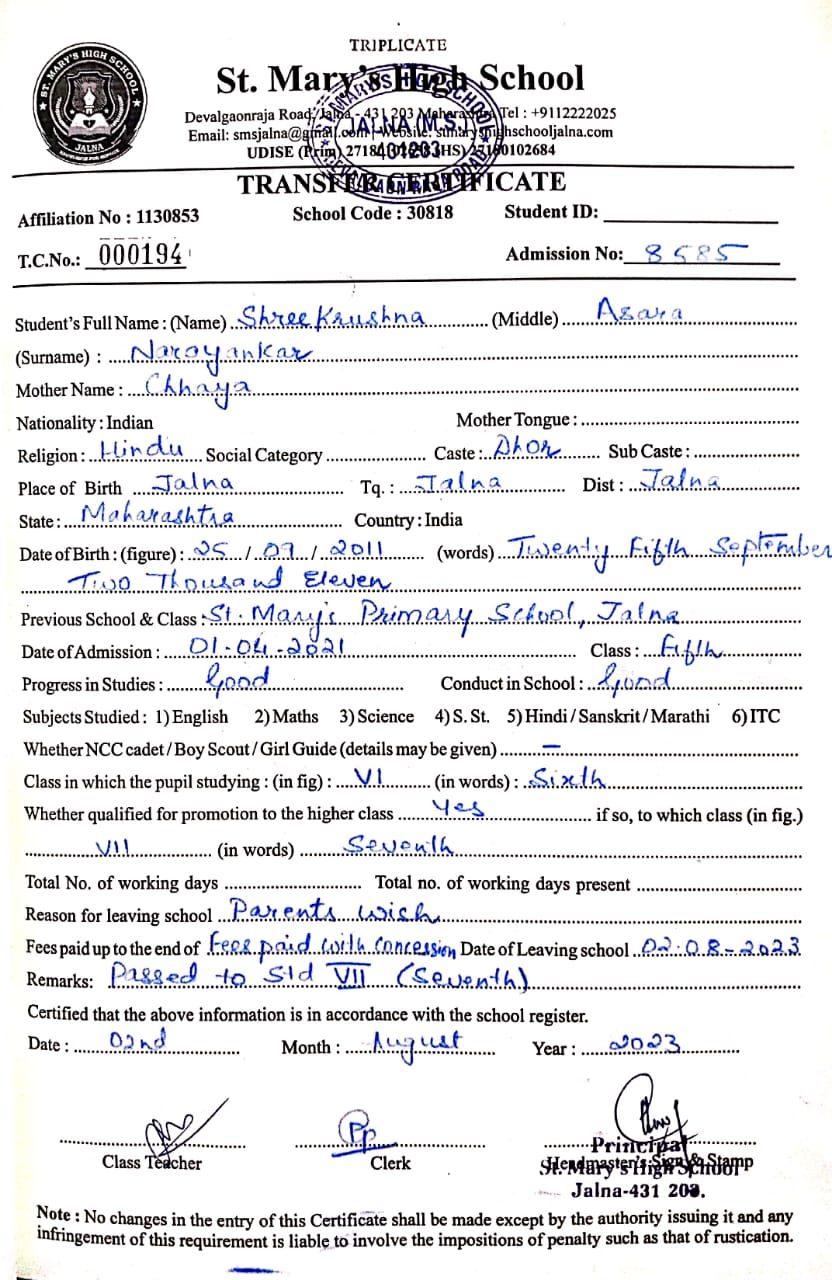 TRIPLICATE
St. Mary's High School
Devalgaonraja Road, Jalna - 431 203 Maharashtra Tel : +9112222025
Email: smsjalna@gmail.com | Website: stmaryshighschooljalna.com
UDISE (Prim) HS) 27180102684
ST. MARY'S HIGH SCHOOL
JALNA
ST. MARY'S HIGH SCHOOL
JALNA (M.S.)
431203
DEVALGAON RAJA ROAD
TRANSFER CERTIFICATE
Affiliation No : 1130853 School Code : 30818 Student ID:
T.C.No.: 000194 Admission No: 8585
Student's Full Name : (Name) ShreeKrushna (Middle) Asara
(Surname) : Narayankar
Mother Name : Chhaya
Nationality : Indian Mother Tongue :
Religion : Hindu Social Category Caste : Dhor Sub Caste :
Place of Birth Jalna Tq. : Jalna Dist : Jalna
State : Maharashtra Country : India
Date of Birth : (figure) : 25 / 09 / 2011 (words) Twenty Fifth September
Two Thousand Eleven
Previous School & Class : St. Mary's Primary School, Jalna
Date of Admission : 01-04-2021 Class : Fifth
Progress in Studies : Good Conduct in School : Good
Subjects Studied : 1) English 2) Maths 3) Science 4) S. St. 5) Hindi / Sanskrit / Marathi 6) ITC
Whether NCC cadet / Boy Scout / Girl Guide (details may be given) —
Class in which the pupil studying : (in fig) : VI (in words) : Sixth
Whether qualified for promotion to the higher class Yes if so, to which class (in fig.)
VII (in words) Seventh
Total No. of working days Total no. of working days present
Reason for leaving school Parents wish
Fees paid up to the end of Fees paid with concession Date of Leaving school 02-08-2023
Remarks: Passed to Std VII (Seventh)
Certified that the above information is in accordance with the school register.
Date : 02nd Month : August Year : 2023
Pp
Class Teacher Clerk Headmaster's Sign & Stamp
Principal
St. Mary's High School
Jalna-431 203.
Note : No changes in the entry of this Certificate shall be made except by the authority issuing it and any
infringement of this requirement is liable to involve the impositions of penalty such as that of rustication.